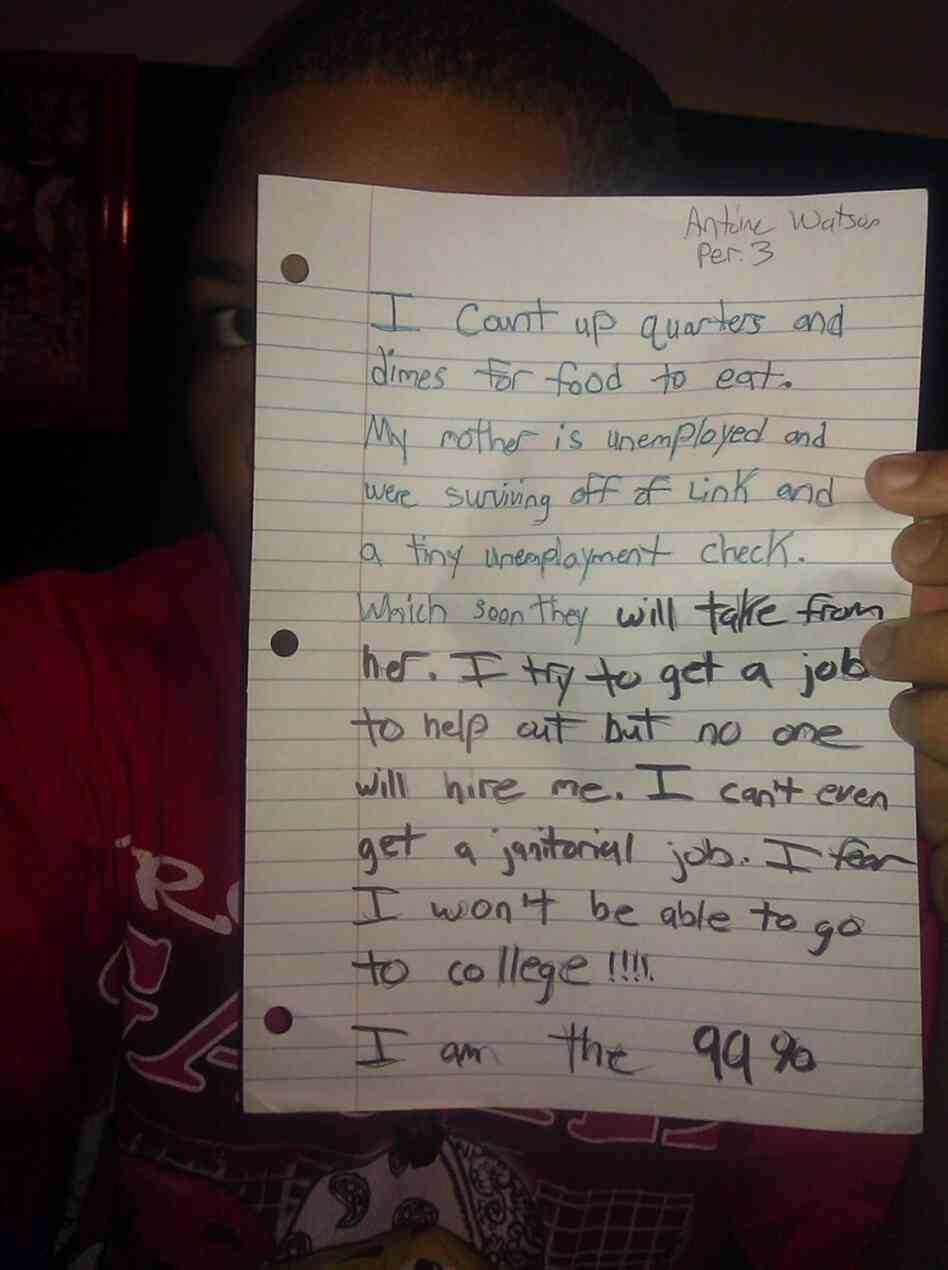 Antoine Watson
Per. 3
I count up quarters and
dimes for food to eat.
My mother is unemployed and
were surviving off of Link and
a tiny unemployment check.
Which soon they will take from
her. I try to get a job
to help out but no one
will hire me. I can't even
get a janitorial job. I fear
I won't be able to go
to college !!!!
I am the 99%